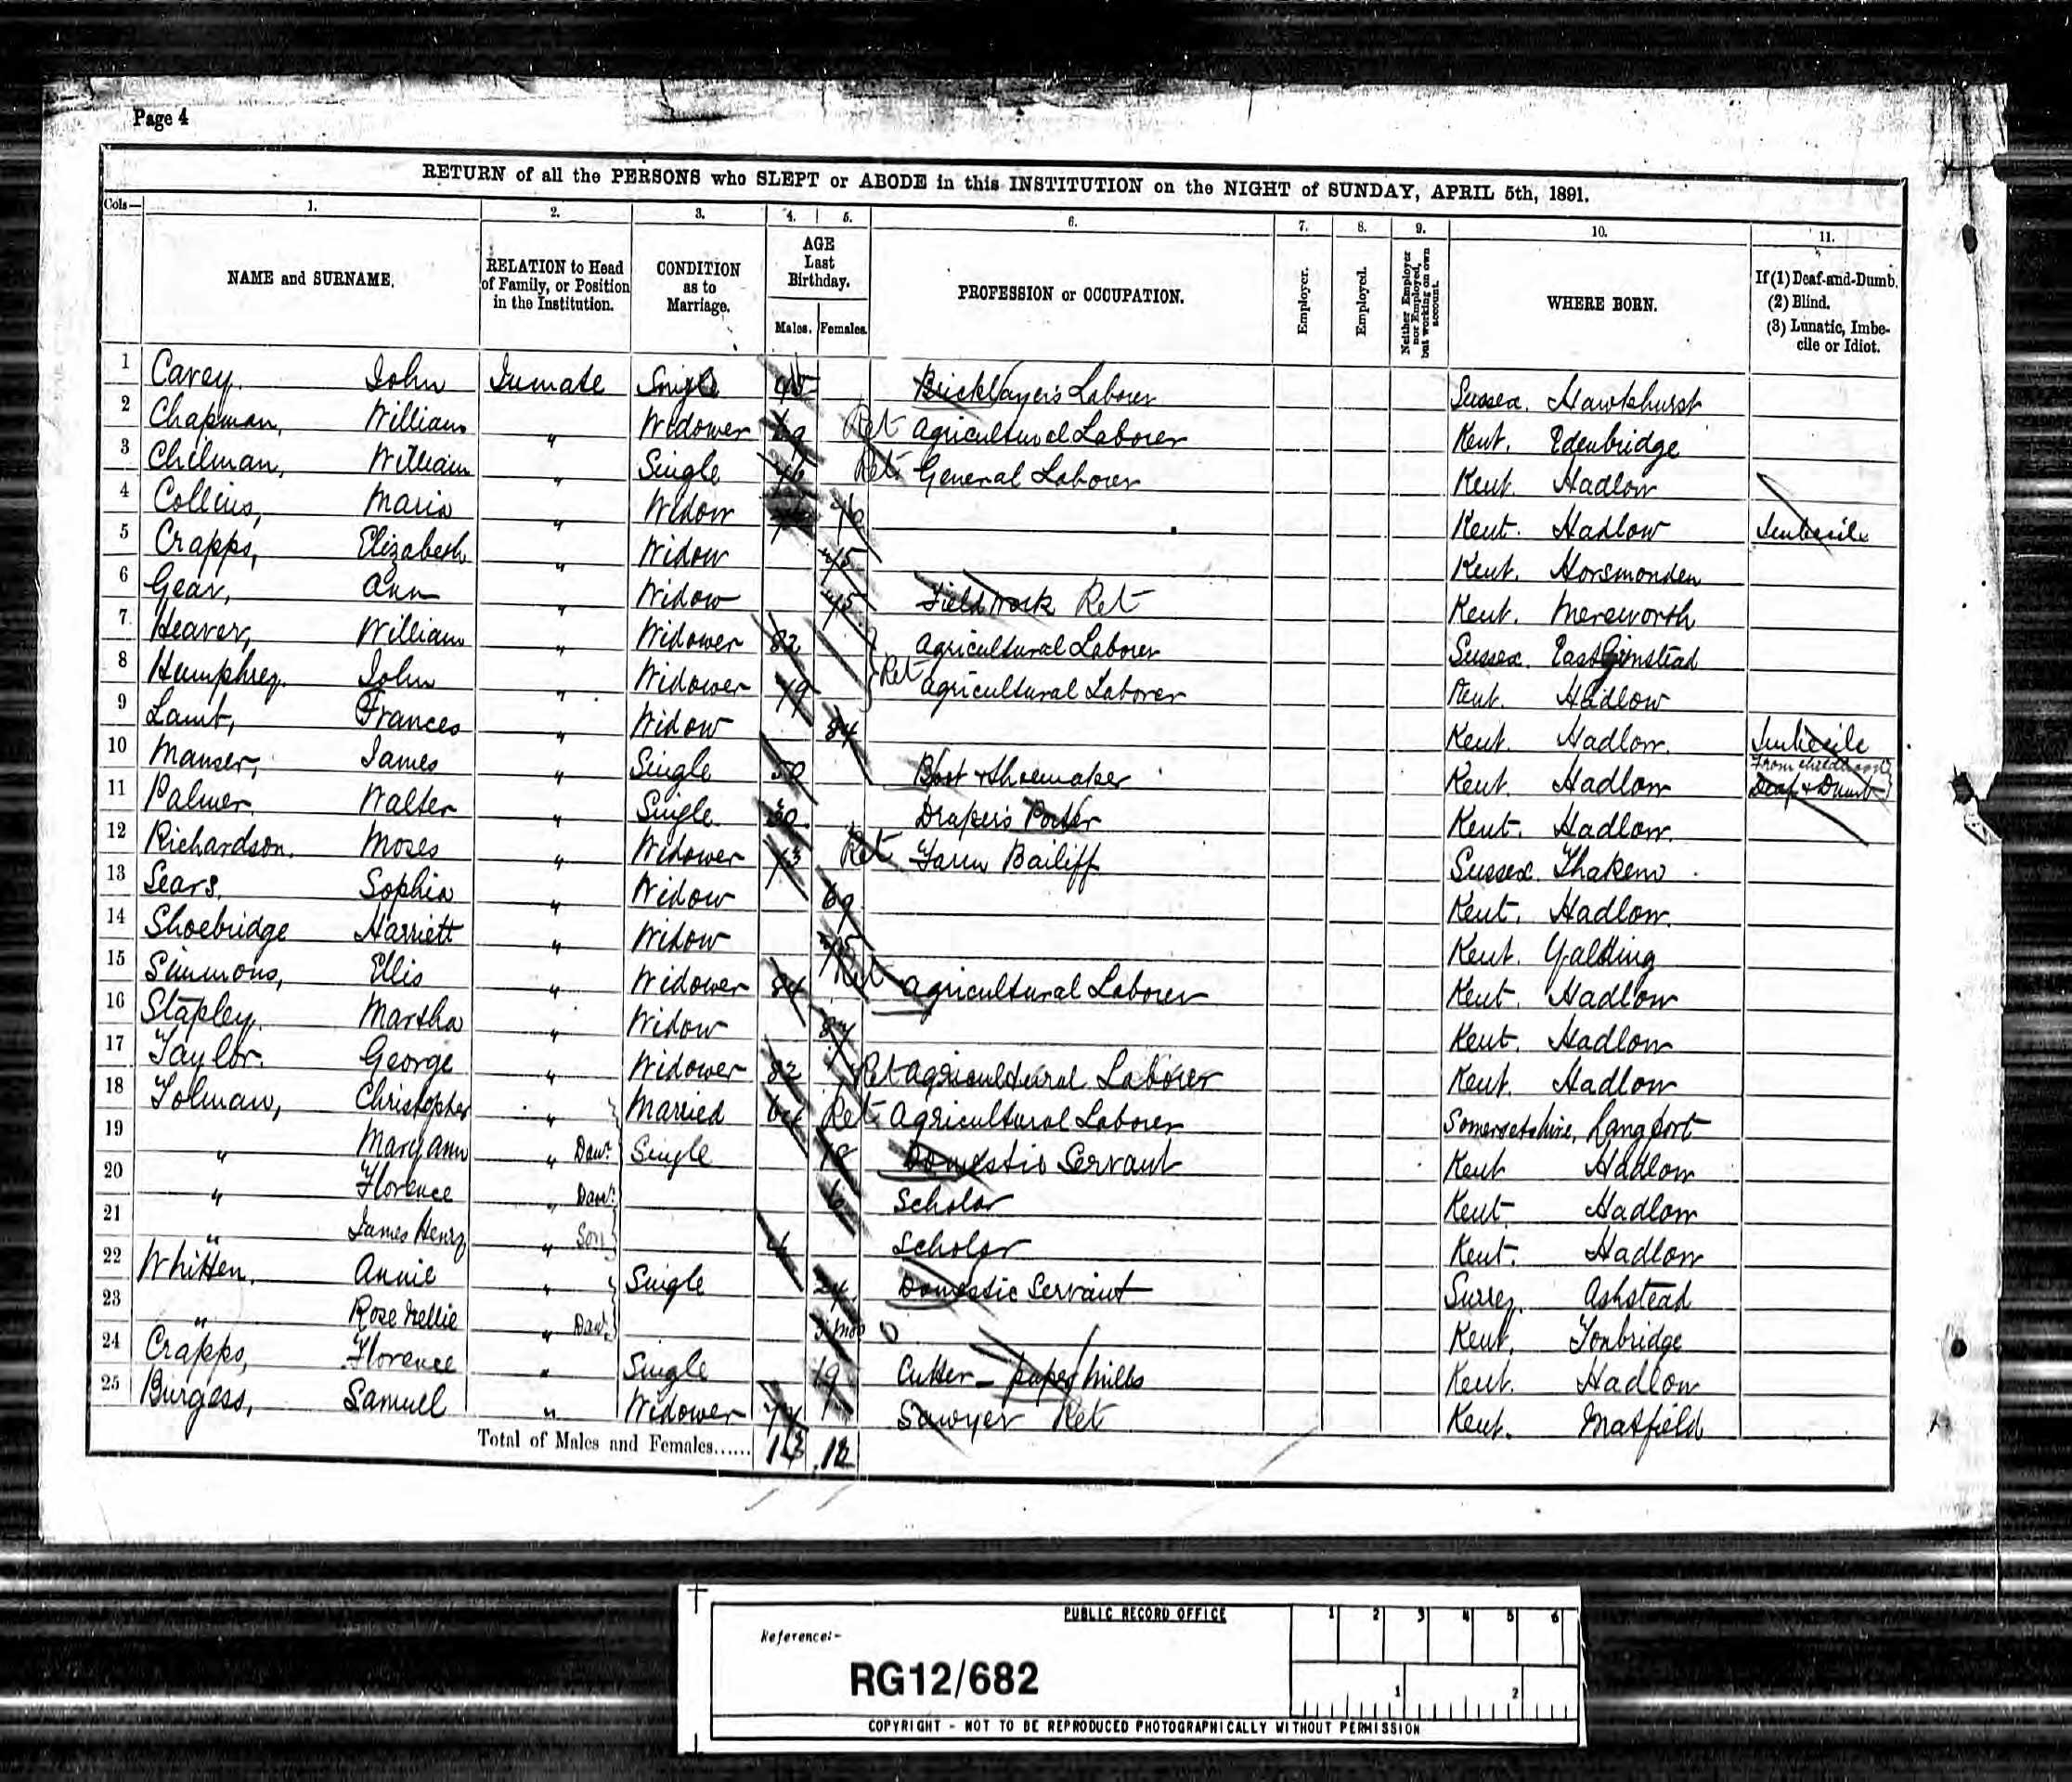 Page 4
RETURN of all the PERSONS who SLEPT or ABODE in this INSTITUTION on the NIGHT of SUNDAY, APRIL 5th, 1891.
Cols— 1. 2. 3. 4. 5. 6. 7. 8. 9. 10. 11.
NAME and SURNAME. RELATION to Head of Family, or Position in the Institution. CONDITION as to Marriage. AGE Last Birthday. Males. Females. PROFESSION or OCCUPATION. Employer. Employed. Neither Employer nor Employed, but working on own account. WHERE BORN. If (1) Deaf-and-Dumb. (2) Blind. (3) Lunatic, Imbecile or Idiot.
1 Carey John Inmate Single 45 Bricklayer's Laborer Sussex. Hawkhurst
2 Chapman, William " Widower 69 Ret Agricultural Laborer Kent. Edenbridge
3 Chilman, William " Single 46 Ret General Laborer Kent. Hadlow
4 Collins, Maria " Widow Kent. Hadlow Imbecile
5 Crapps, Elizabeth " Widow 75 Kent. Horsmonden
6 Gear, Ann " Widow 75 Field Work Ret Kent. Mereworth
7 Heaver, William " Widower 82 Agricultural Laborer Sussex. East Grinstead
8 Humphrey. John " Widower 79 Ret Agricultural Laborer Kent. Hadlow
9 Lamt, Frances " Widow 84 Kent. Hadlow. Imbecile
10 Manser, James " Single 50 Boot & Shoemaker Kent. Hadlow From childhood Deaf & Dumb
11 Palmer Walter " Single 30 Draper's Porter Kent. Hadlow.
12 Richardson. Moses " Widower 73 Ret Farm Bailiff Sussex. Thakem
13 Sears, Sophia " Widow 69 Kent. Hadlow.
14 Shoebridge Harriett " Widow 75 Kent. Yalding
15 Simmons, Ellis " Widower 84 Ret Agricultural Laborer Kent. Hadlow
16 Stapley. Martha " Widow Kent. Hadlow
17 Taylor. George " Widower 82 Ret Agricultural Laborer Kent. Hadlow
18 Tolman, Christopher " Married 64 Ret Agricultural Laborer Somersetshire, Langport
19 " Mary ann " Daur. Single 18 Domestic Servant Kent Hadlow
20 " Florence " Daur. 6 Scholar Kent Hadlow
21 " James Henry " Son 4 Scholar Kent. Hadlow
22 Whitten. Annie " Single 24 Domestic Servant Surrey. Ashstead
23 " Rose Nellie " Daur. mos Kent, Tonbridge
24 Crapps, Florence " Single 19 Cutter - paper mills Kent. Hadlow
25 Burgess, Samuel " Widower 74 Sawyer Ret Kent. Matfield
Total of Males and Females...... 13 12
PUBLIC RECORD OFFICE
Reference:-
RG12/682
1 2 3 4 5 6
1 2
COPYRIGHT - NOT TO BE REPRODUCED PHOTOGRAPHICALLY WITHOUT PERMISSION